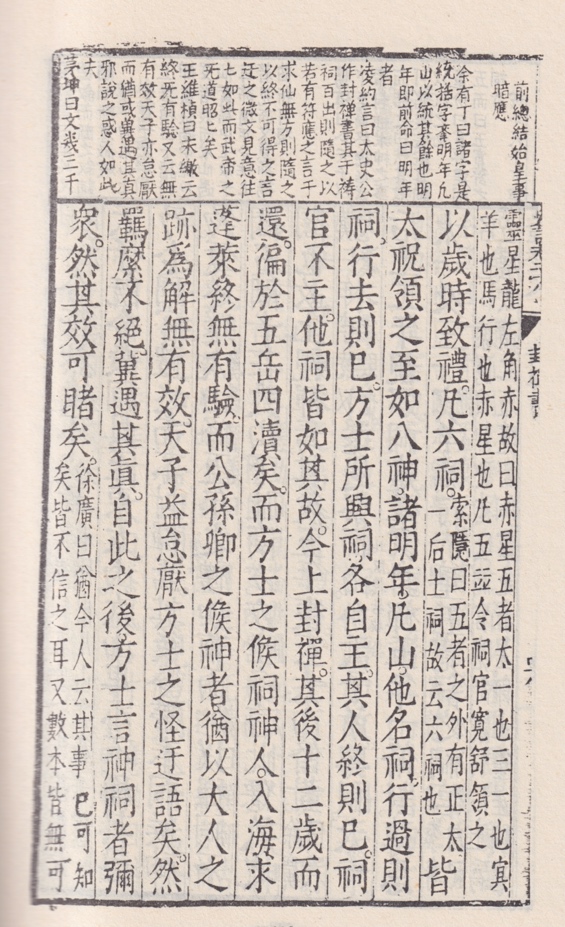 前總結始皇事
暗應
余有丁曰諸字是
統括字率明年凡
山以統其餘也明
年即前命曰明年
者
凌約言曰太史公
作封禪書其于禱
祠百出則隨之以
若有符應之言于
求仙無方則隨之
以終不可得之言
迂之微文見意往
七如此而武帝之
死道昭匕矣
王維楨曰末纔云
終死有驗又云無
有效天子亦怠厭
而猶或冀遇其真
邪說之惑人如此
夫
茅坤曰文幾三千
封禪書
靈星龍左角赤故曰赤星五者太一也三一也㝠
羊也馬行也赤星也凡五並令祠官寬舒領之
以歲時致禮凡六祠索隱曰五者之外有正太
一后土祠故云六祠也皆
太祝領之至如八神諸明年凡山他名祠行過則
祠行去則已方士所興祠各自主其人終則已祠
官不主他祠皆如其故今上封禪其後十二歲而
還徧於五岳四瀆矣而方士之候祠神人入海求
蓬萊終無有驗而公孫卿之候神者猶以大人之
跡爲解無有效天子益怠厭方士之怪迂語矣然
羈縻不絕冀遇其真自此之後方士言神祠者彌
衆然其效可睹矣徐廣曰猶今人云其事已可知
矣皆不信之耳又數本皆無可